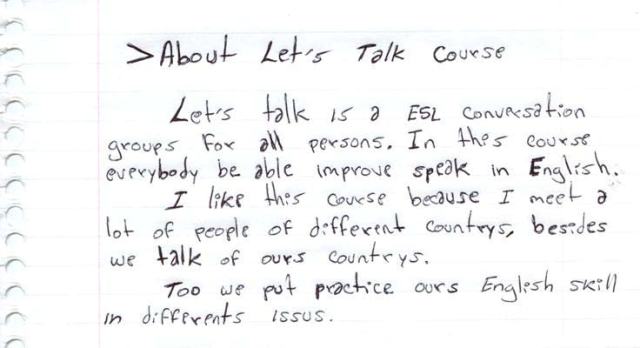 >About Let's Talk Course
Let's talk is a ESL Conversation
groups For all persons. In thes course
everybody be able improve speak in English.
I like thes course because I meet a
lot of people of different countrys, besides
we talk of ours countrys.
Too we put practice ours English skill
in differents issus.